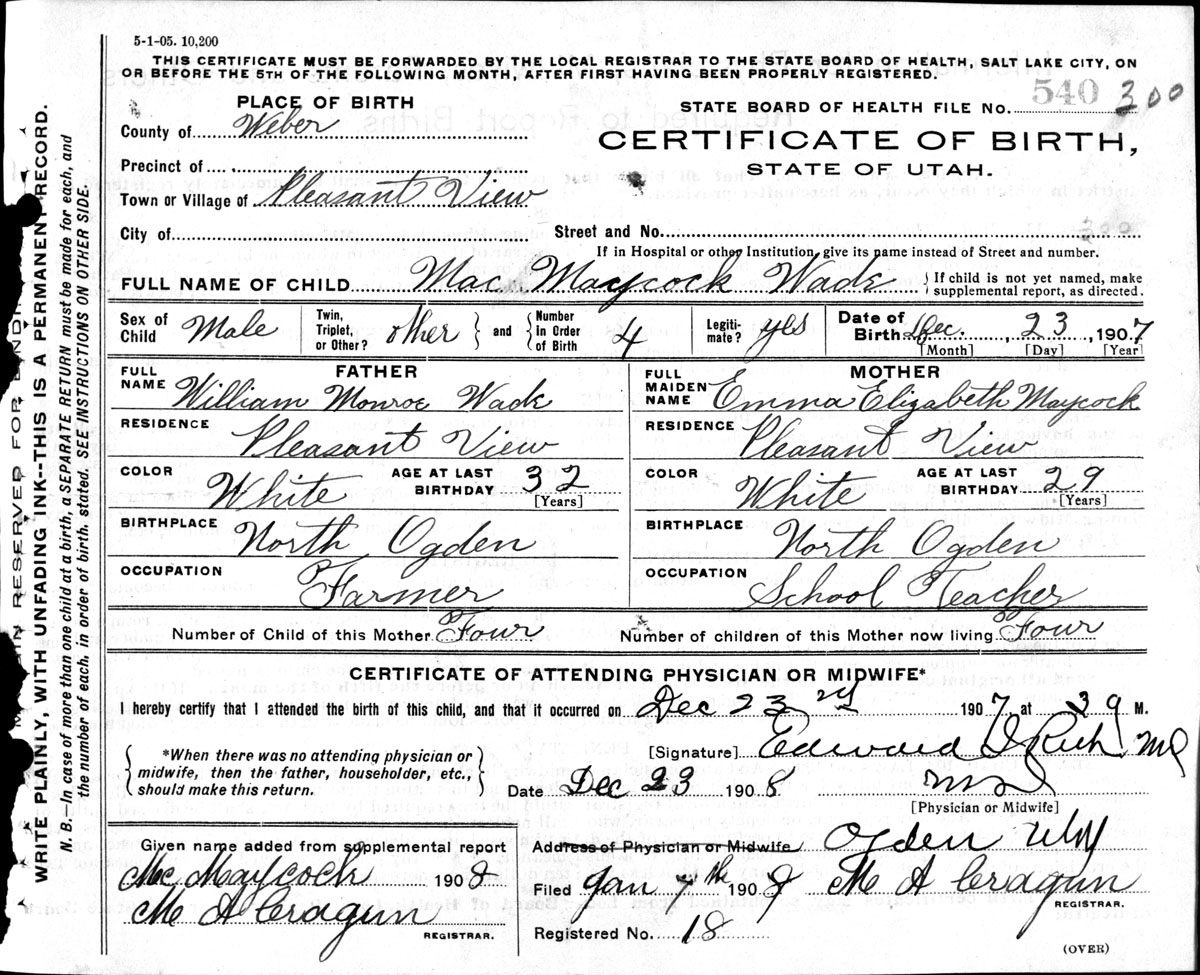 5-1-05. 10,200
THIS CERTIFICATE MUST BE FORWARDED BY THE LOCAL REGISTRAR TO THE STATE BOARD OF HEALTH, SALT LAKE CITY, ON
OR BEFORE THE 5TH OF THE FOLLOWING MONTH, AFTER FIRST HAVING BEEN PROPERLY REGISTERED.
PLACE OF BIRTH
County of Weber
Precinct of
Town or Village of Pleasant View
City of
STATE BOARD OF HEALTH FILE No. 540 300
CERTIFICATE OF BIRTH,
STATE OF UTAH.
Street and No.
If in Hospital or other Institution, give its name instead of Street and number.
FULL NAME OF CHILD Mac Maycock Wade {If child is not yet named, make
supplemental report, as directed.
Sex of Child Male
Twin, Triplet, or Other? other } and { Number in Order of Birth 4
Legiti-mate? yes
Date of Birth Dec. 23, 1907
[Month] [Day] [Year]
FATHER
FULL NAME William Monroe Wade
RESIDENCE Pleasant View
COLOR White AGE AT LAST BIRTHDAY 32 [Years]
BIRTHPLACE North Ogden
OCCUPATION Farmer
MOTHER
FULL MAIDEN NAME Emma Elizabeth Maycock
RESIDENCE Pleasant View
COLOR White AGE AT LAST BIRTHDAY 29 [Years]
BIRTHPLACE North Ogden
OCCUPATION School Teacher
Number of Child of this Mother Four Number of children of this Mother now living Four
CERTIFICATE OF ATTENDING PHYSICIAN OR MIDWIFE*
I hereby certify that I attended the birth of this child, and that it occurred on Dec 23 1907 at M.
{*When there was no attending physician or
midwife, then the father, householder, etc.,
should make this return.}
[Signature] Edward I Rich MD
Date Dec 23 1908 MD
[Physician or Midwife]
Address of Physician or Midwife Ogden
Given name added from supplemental report
Mc Maycock 1908
M A Cragun
REGISTRAR.
Filed Jan 7th 1908 M A Cragun
REGISTRAR.
Registered No. 18
(OVER)
MARGIN RESERVED FOR BINDING
WRITE PLAINLY, WITH UNFADING INK--THIS IS A PERMANENT RECORD.
N. B.—In case of more than one child at a birth, a SEPARATE RETURN must be made for each, and
the number of each, in order of birth, stated. SEE INSTRUCTIONS ON OTHER SIDE.